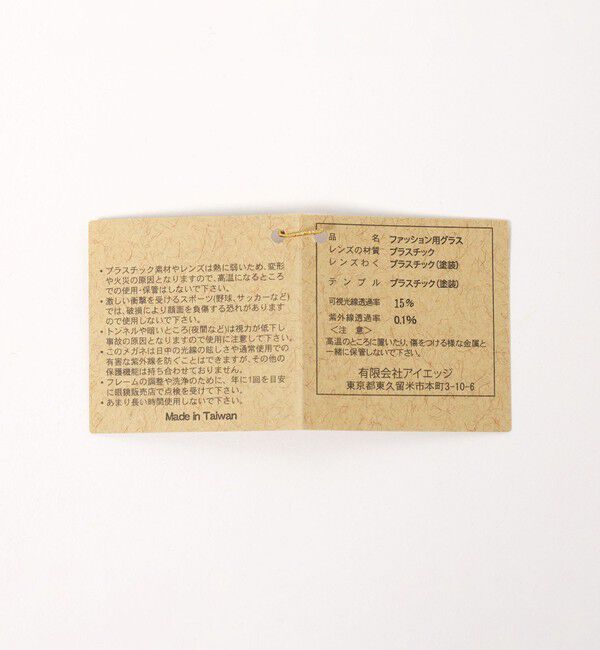 ・プラスチック素材やレンズは熱に弱いため、変形
や火災の原因となりますので、高温になるところ
での使用・保管はしないで下さい。
・激しい衝撃を受けるスポーツ(野球、サッカーなど)
では、破損により顔面を負傷する恐れがあります
ので使用しないで下さい。
・トンネルや暗いところ(夜間など)は視力が低下し
事故の原因となりますので使用に注意して下さい。
・このメガネは日中の光線の眩しさや通常使用での
有害な紫外線を防ぐことはできますが、その他の
保護機能は持ち合わせておりません。
・フレームの調整や洗浄のために、年に1回を目安
に眼鏡販売店で点検を受けて下さい。
・あまり長い時間使用しないで下さい。
Made in Taiwan
品 名 ファッション用グラス
レンズの材質 プラスチック
レンズわく プラスチック(塗装)
テンプル プラスチック(塗装)
可視光線透過率 15%
紫外線透過率 0.1%
＜注 意＞
高温のところに置いたり、傷をつける様な金属と
一緒に保管しないで下さい。
有限会社アイエッジ
東京都東久留米市本町3-10-6